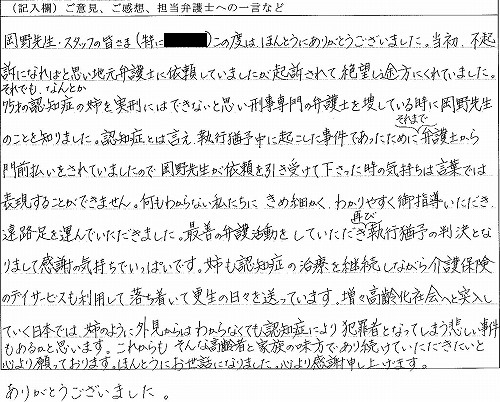 (記入欄)ご意見、ご感想、担当弁護士への一言など
岡野先生・スタッフの皆さま(特に )この度は、ほんとうにありがとうございました。当初、不起
訴になればと思い地元弁護士に依頼していましたが起訴されて絶望し途方にくれていました。
それでも、なんとか
75才の認知症の姉を実刑にはできないと思い刑事専門の弁護士を捜している時に岡野先生
のことを知りました。認知症とは言え、執行猶予中に起こした事件であったためにそれまで弁護士から
門前払いをされていましたので岡野先生が依頼を引き受けて下さった時の気持ちは言葉では
表現することができません。何もわからない私たちに きめ細かく、わかりやすく御指導いただき、
遠路足を運んでいただきました。最善の弁護活動をしていただき再び執行猶予の判決とな
りまして感謝の気持ちでいっぱいです。姉も認知症の治療を継続しながら介護保険
のデイサービスも利用して落ち着いて更生の日々を送っています。増々高齢化社会へと突入し
ていく日本では、姉のように外見からはわからなくても認知症により犯罪者となってしまう悲しい事件
もあるかと思います。これからもそんな高齢者と家族の味方であり続けていただきたいと
心より願っております。ほんとうにお世話になりました。心より感謝申し上げます。
ありがとうございました。